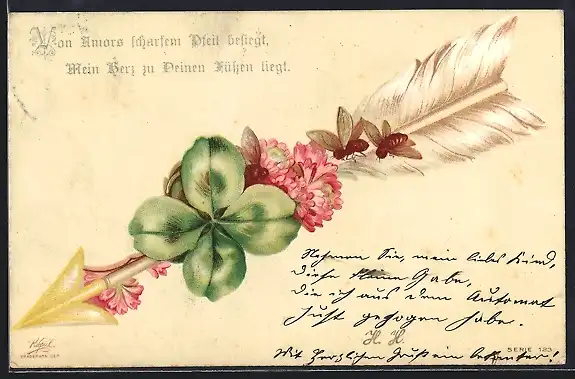 Von Amors scharfem Pfeil besiegt,
Mein Herz zu Deinen Füßen liegt.
Nehmen Sie, mein liebes Kind,
diese kleine Gabe,
die ich aus dem Automat
just gezogen habe.
H. H.
Mit herzlichem Gruß ein
SERIE 123